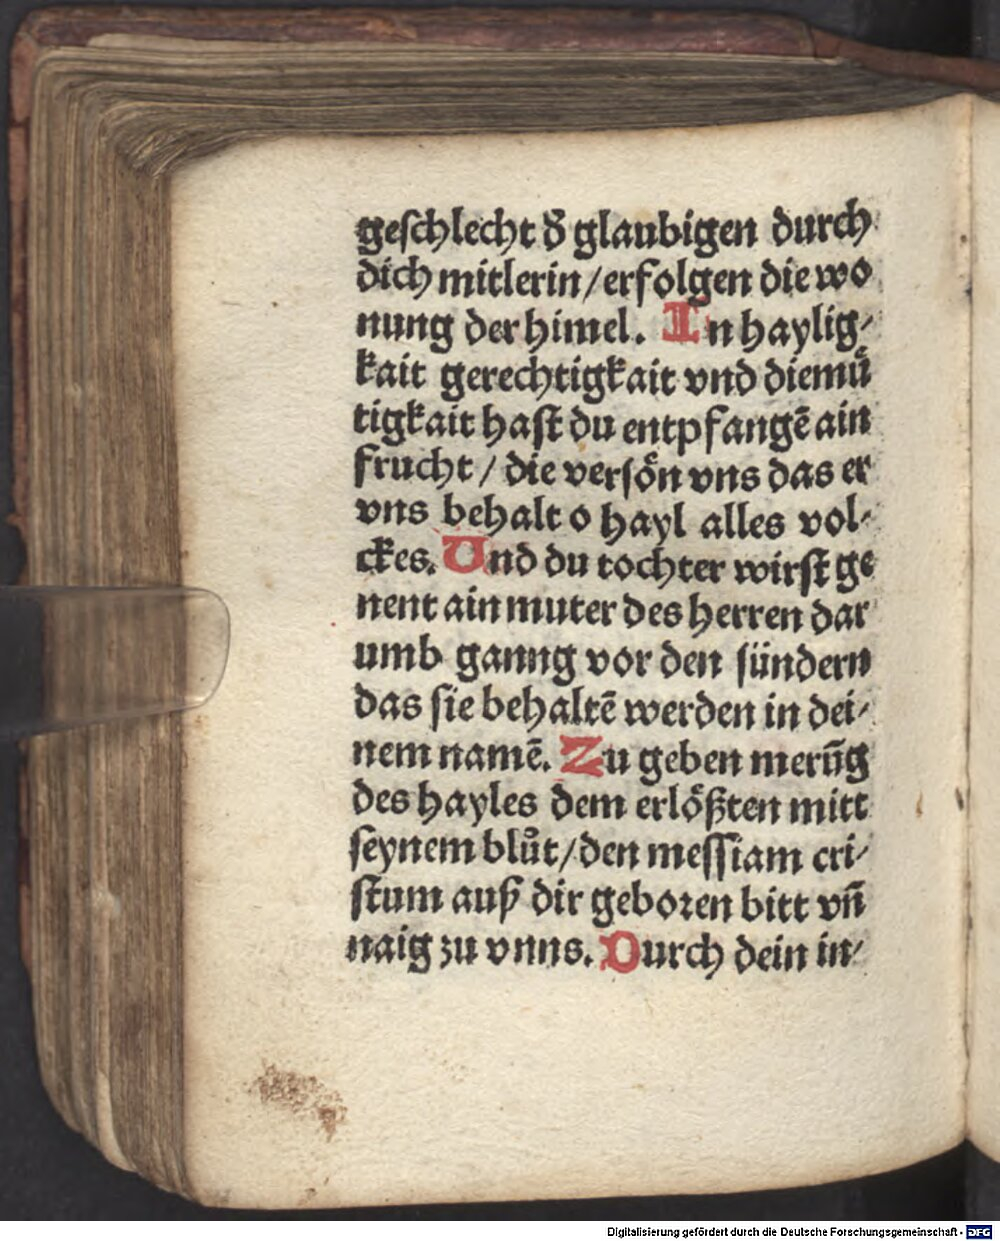 geſchlecht ď glaubigen durch
dich mitlerin/erfolgen die wo
nung der himel. In haylig⸗
kait gerechtigkait vnd diemuͤ
tigkait haſt du entpfangē ain
frucht / die verſoͤn vns das er
vns behalt o hayl alles vol⸗
ckes. Und du tochter wirſt ge
nent ain muter des herren dar
umb ganng vor den ſündern
das ſie behaltē werden in dei⸗
nem namē. Zu geben merūg
des hayles dem erloͤßten mitt
ſeynem bluͦt/den meſſiam cri⸗
ſtum auß dir geboꝛen bitt vn̄
naig zu vnns. Durch dein in⸗
Digitalisierung gefördert durch die Deutsche Forschungsgemeinschaft - DFG